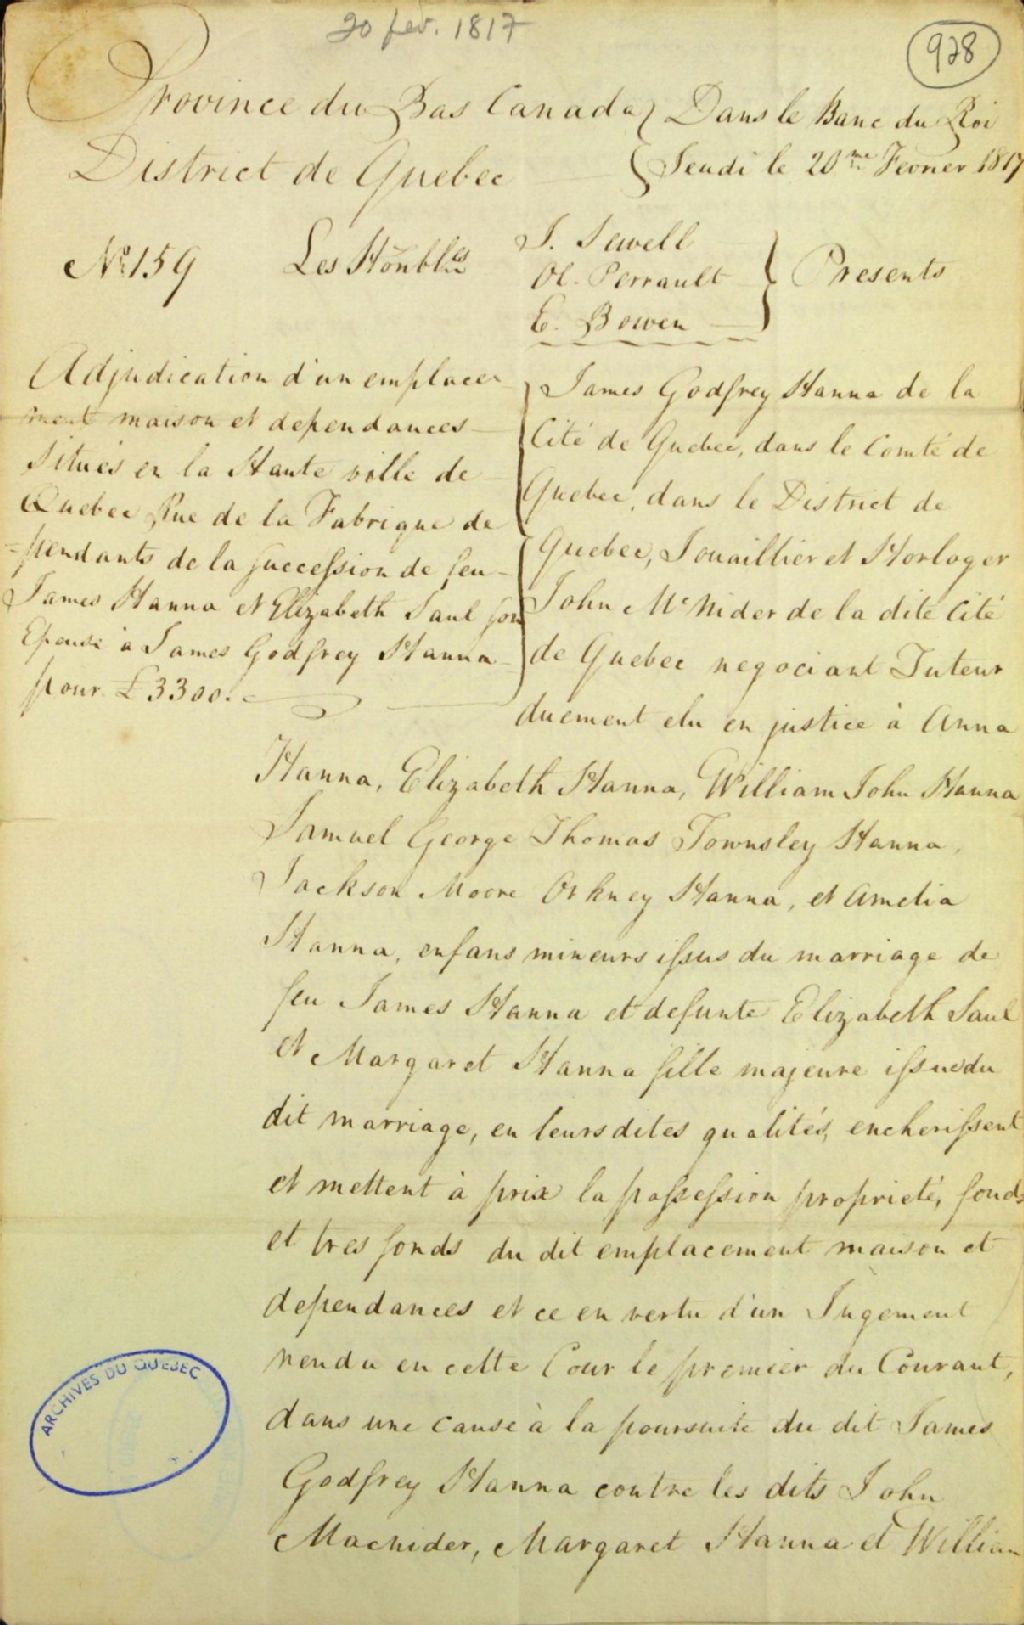 20 fev. 1817
928
Province du Bas Canada } Dans le Banc du Roi
District de Quebec { Jeudi le 20me Fevrier 1817
No. 159 Les Honbles
J. Sewell
Ol. Perrault
E. Bowen
Presents
Adjudication d'un emplace-
ment maison et dependances
situés en la Haute ville de
Quebec Rue de la Fabrique de
=pendants de la succession de feu
James Hanna et Elizabeth Saul son
Epouse à James Godfrey Hanna
pour £3300.
James Godfrey Hanna de la
Cité de Quebec, dans le Comté de
Quebec, dans le District de
Quebec, Jouaillier et Horloger
John Mc Nider de la dite Cité
de Quebec negociant Tuteur
duement elu en justice à Anna
Hanna, Elizabeth Hanna, William John Hanna
Samuel George Thomas Townsley Hanna,
Jackson Moore Orkney Hanna, et Amelia
Hanna, enfans mineurs issus du marriage de
feu James Hanna et defunte Elizabeth Saul
et Margaret Hanna fille majeure issue du
dit marriage, en leurs dites qualités, encherissent
et mettent à prix la possession proprieté, fonds
et tres fonds du dit emplacement maison et
dependances et ce en vertu d'un Jugement
rendu en cette Cour le premier du Courant,
dans une cause à la poursuite du dit James
Godfrey Hanna contre les dits John
Macnider, Margaret Hanna et William
ARCHIVES DU QUEBEC